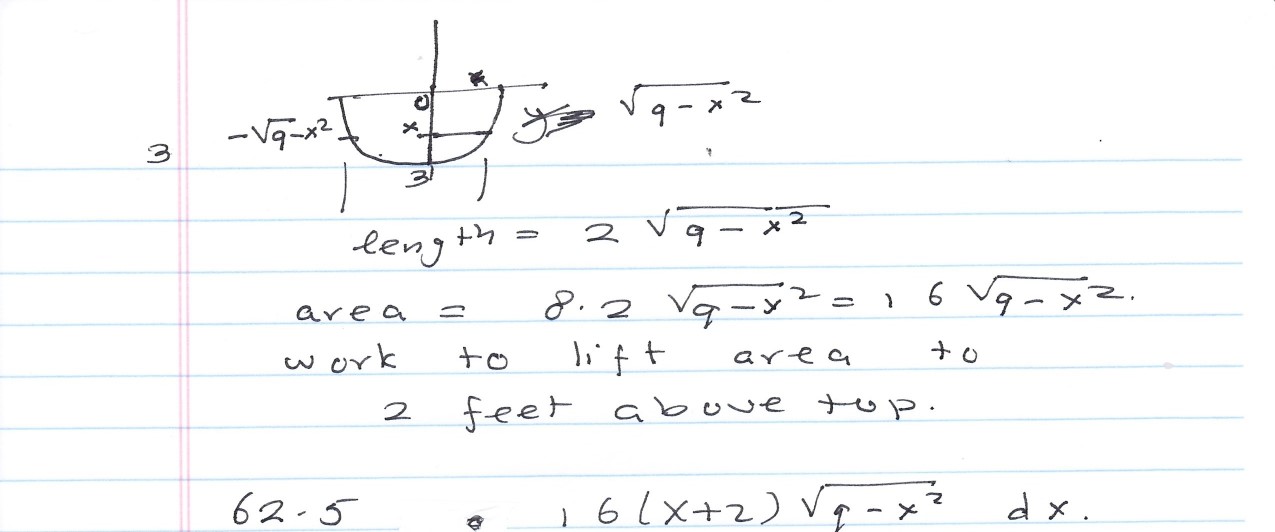 x
0
-√9-x² x y= √9-x²
3
3
length = 2 √9-x²
area = 8.2 √9-x² = 16 √9-x².
work to lift area to
2 feet above top.
62.5 · 16(x+2) √9-x² dx.